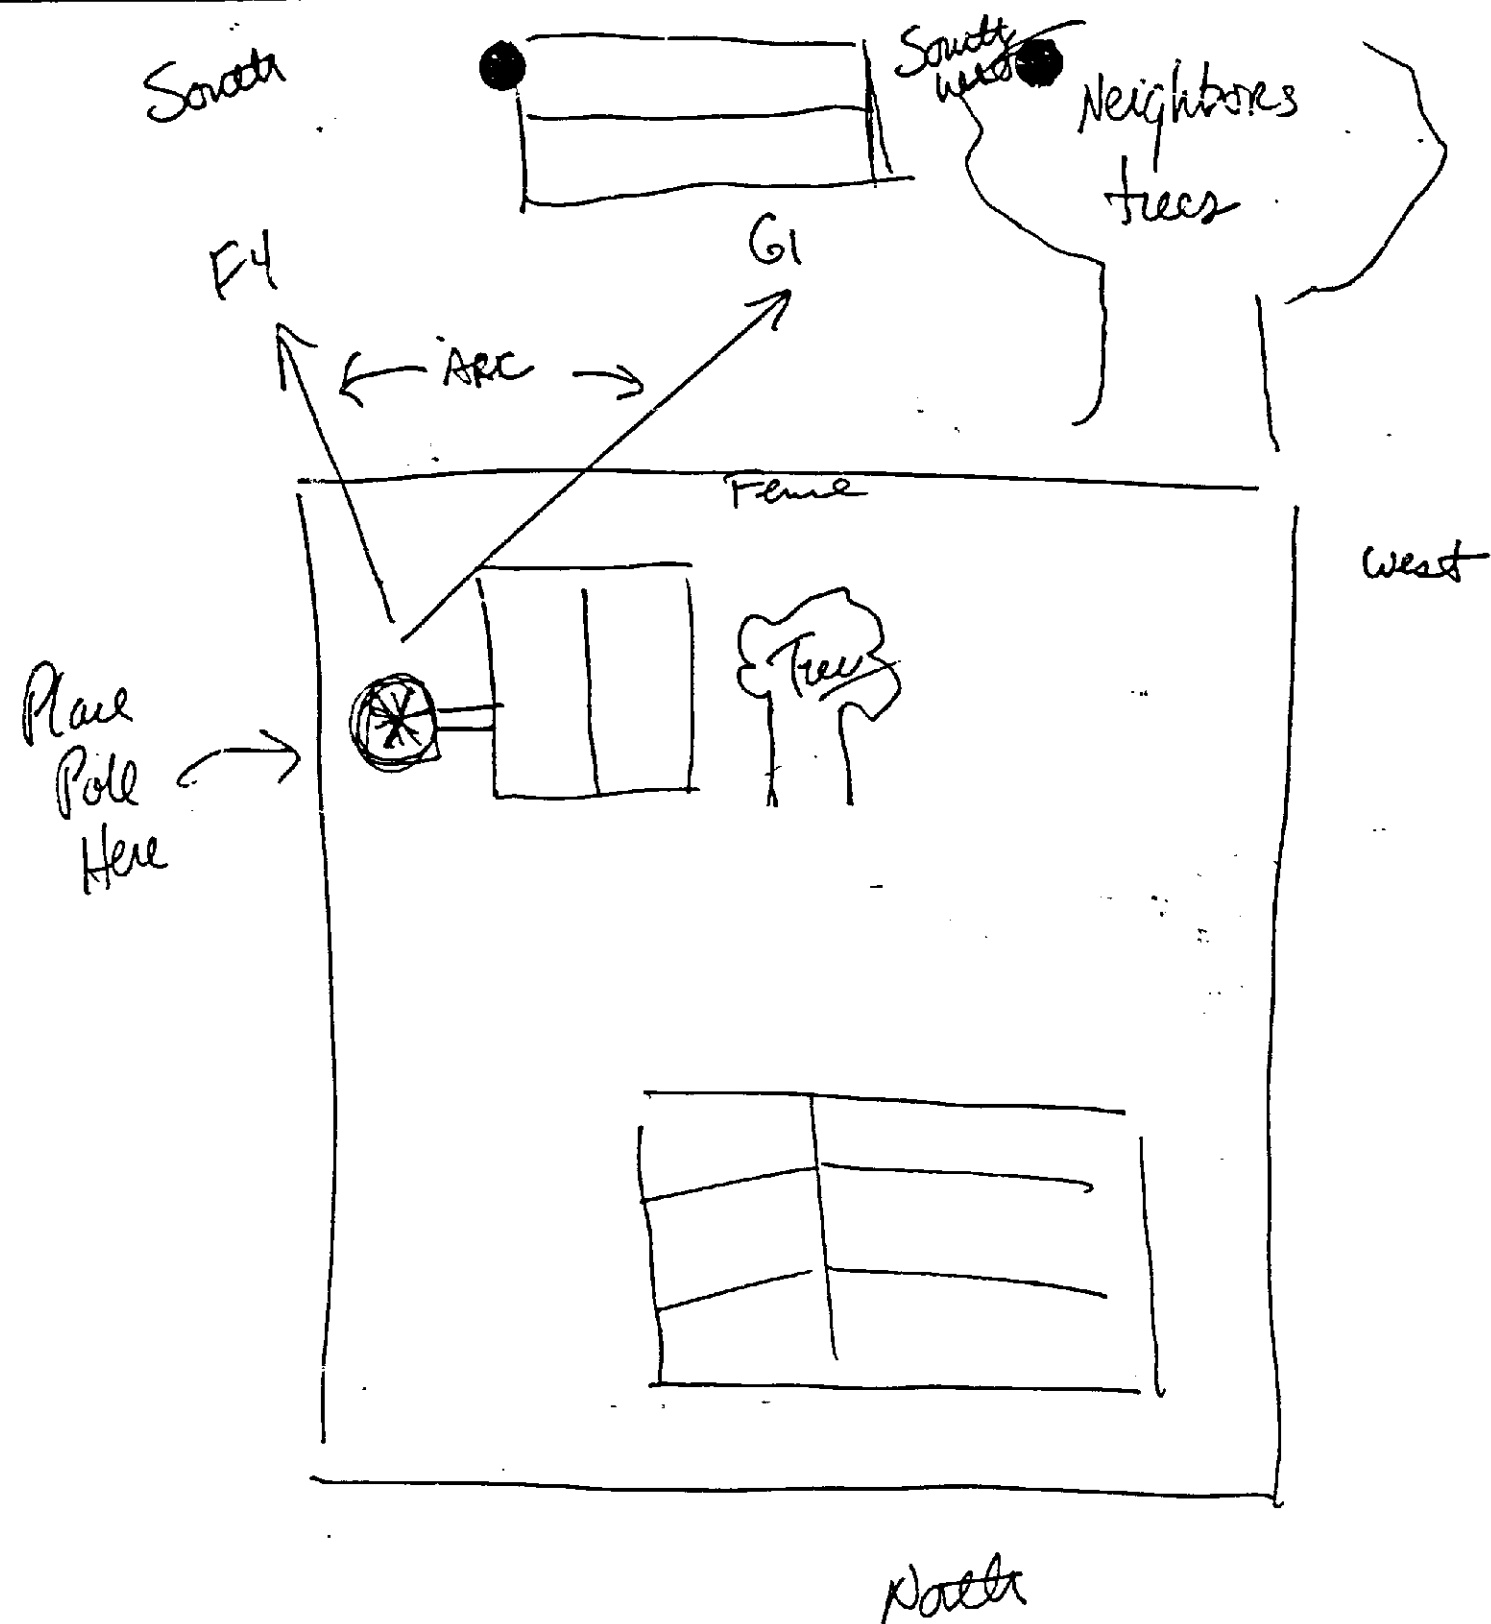 South
South
west
Neighbors
trees
F4
G1
ARC
Fence
west
Tree
Place
Pole
Here
North